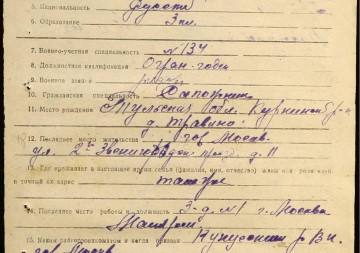 5. Национальность Русский
6. Образование 3 кл.
7. Военно-учетная специальность №134
8. Должностная квалификация Огран-годен
9. Военное звание
10. Гражданская специальность Сапожник
11. Место рождения Тульская обл. Куркинск р-н
д. Травино
12. Последнее место жительства гор. Москва
ул. 2ая Звенигородск д. 11
13. Где проживает в настоящее время семья (фамилия, имя, отчество) жены или родителей
и точный их адрес
14. Последнее место работы и должность з-д №1 г. Москва
15. Каким райгорвоенкоматом и когда призван РВК
гор. Москва